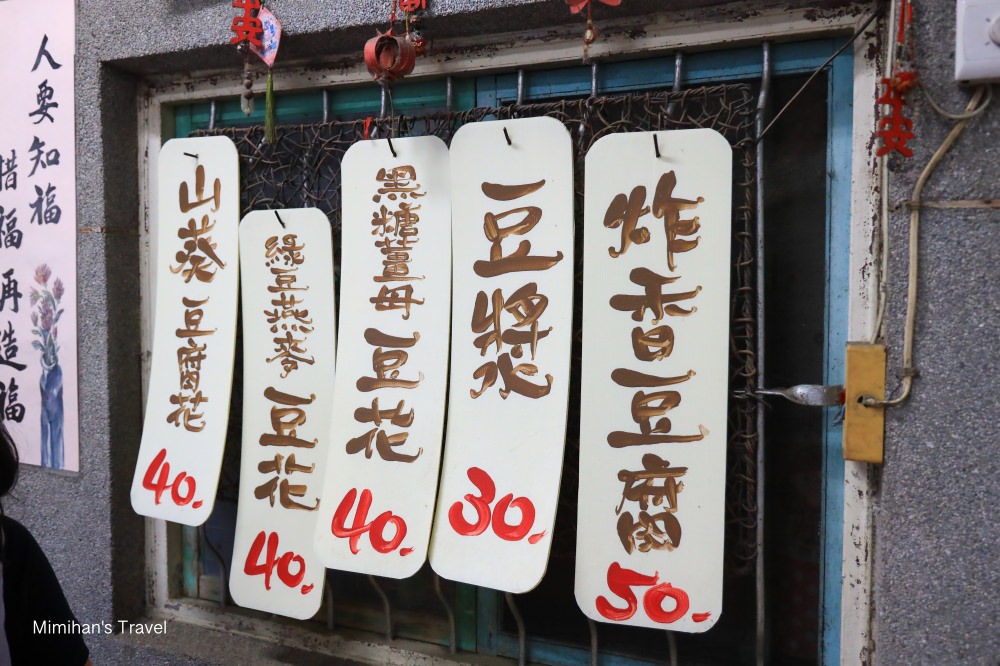 人要知福
惜福
再造福
平安
山葵豆腐花
40.
綠豆燕麥豆花
40.
黑糖薑母豆花
40.
豆漿
30.
炸香豆腐
50.
平安
Mimihan's Travel